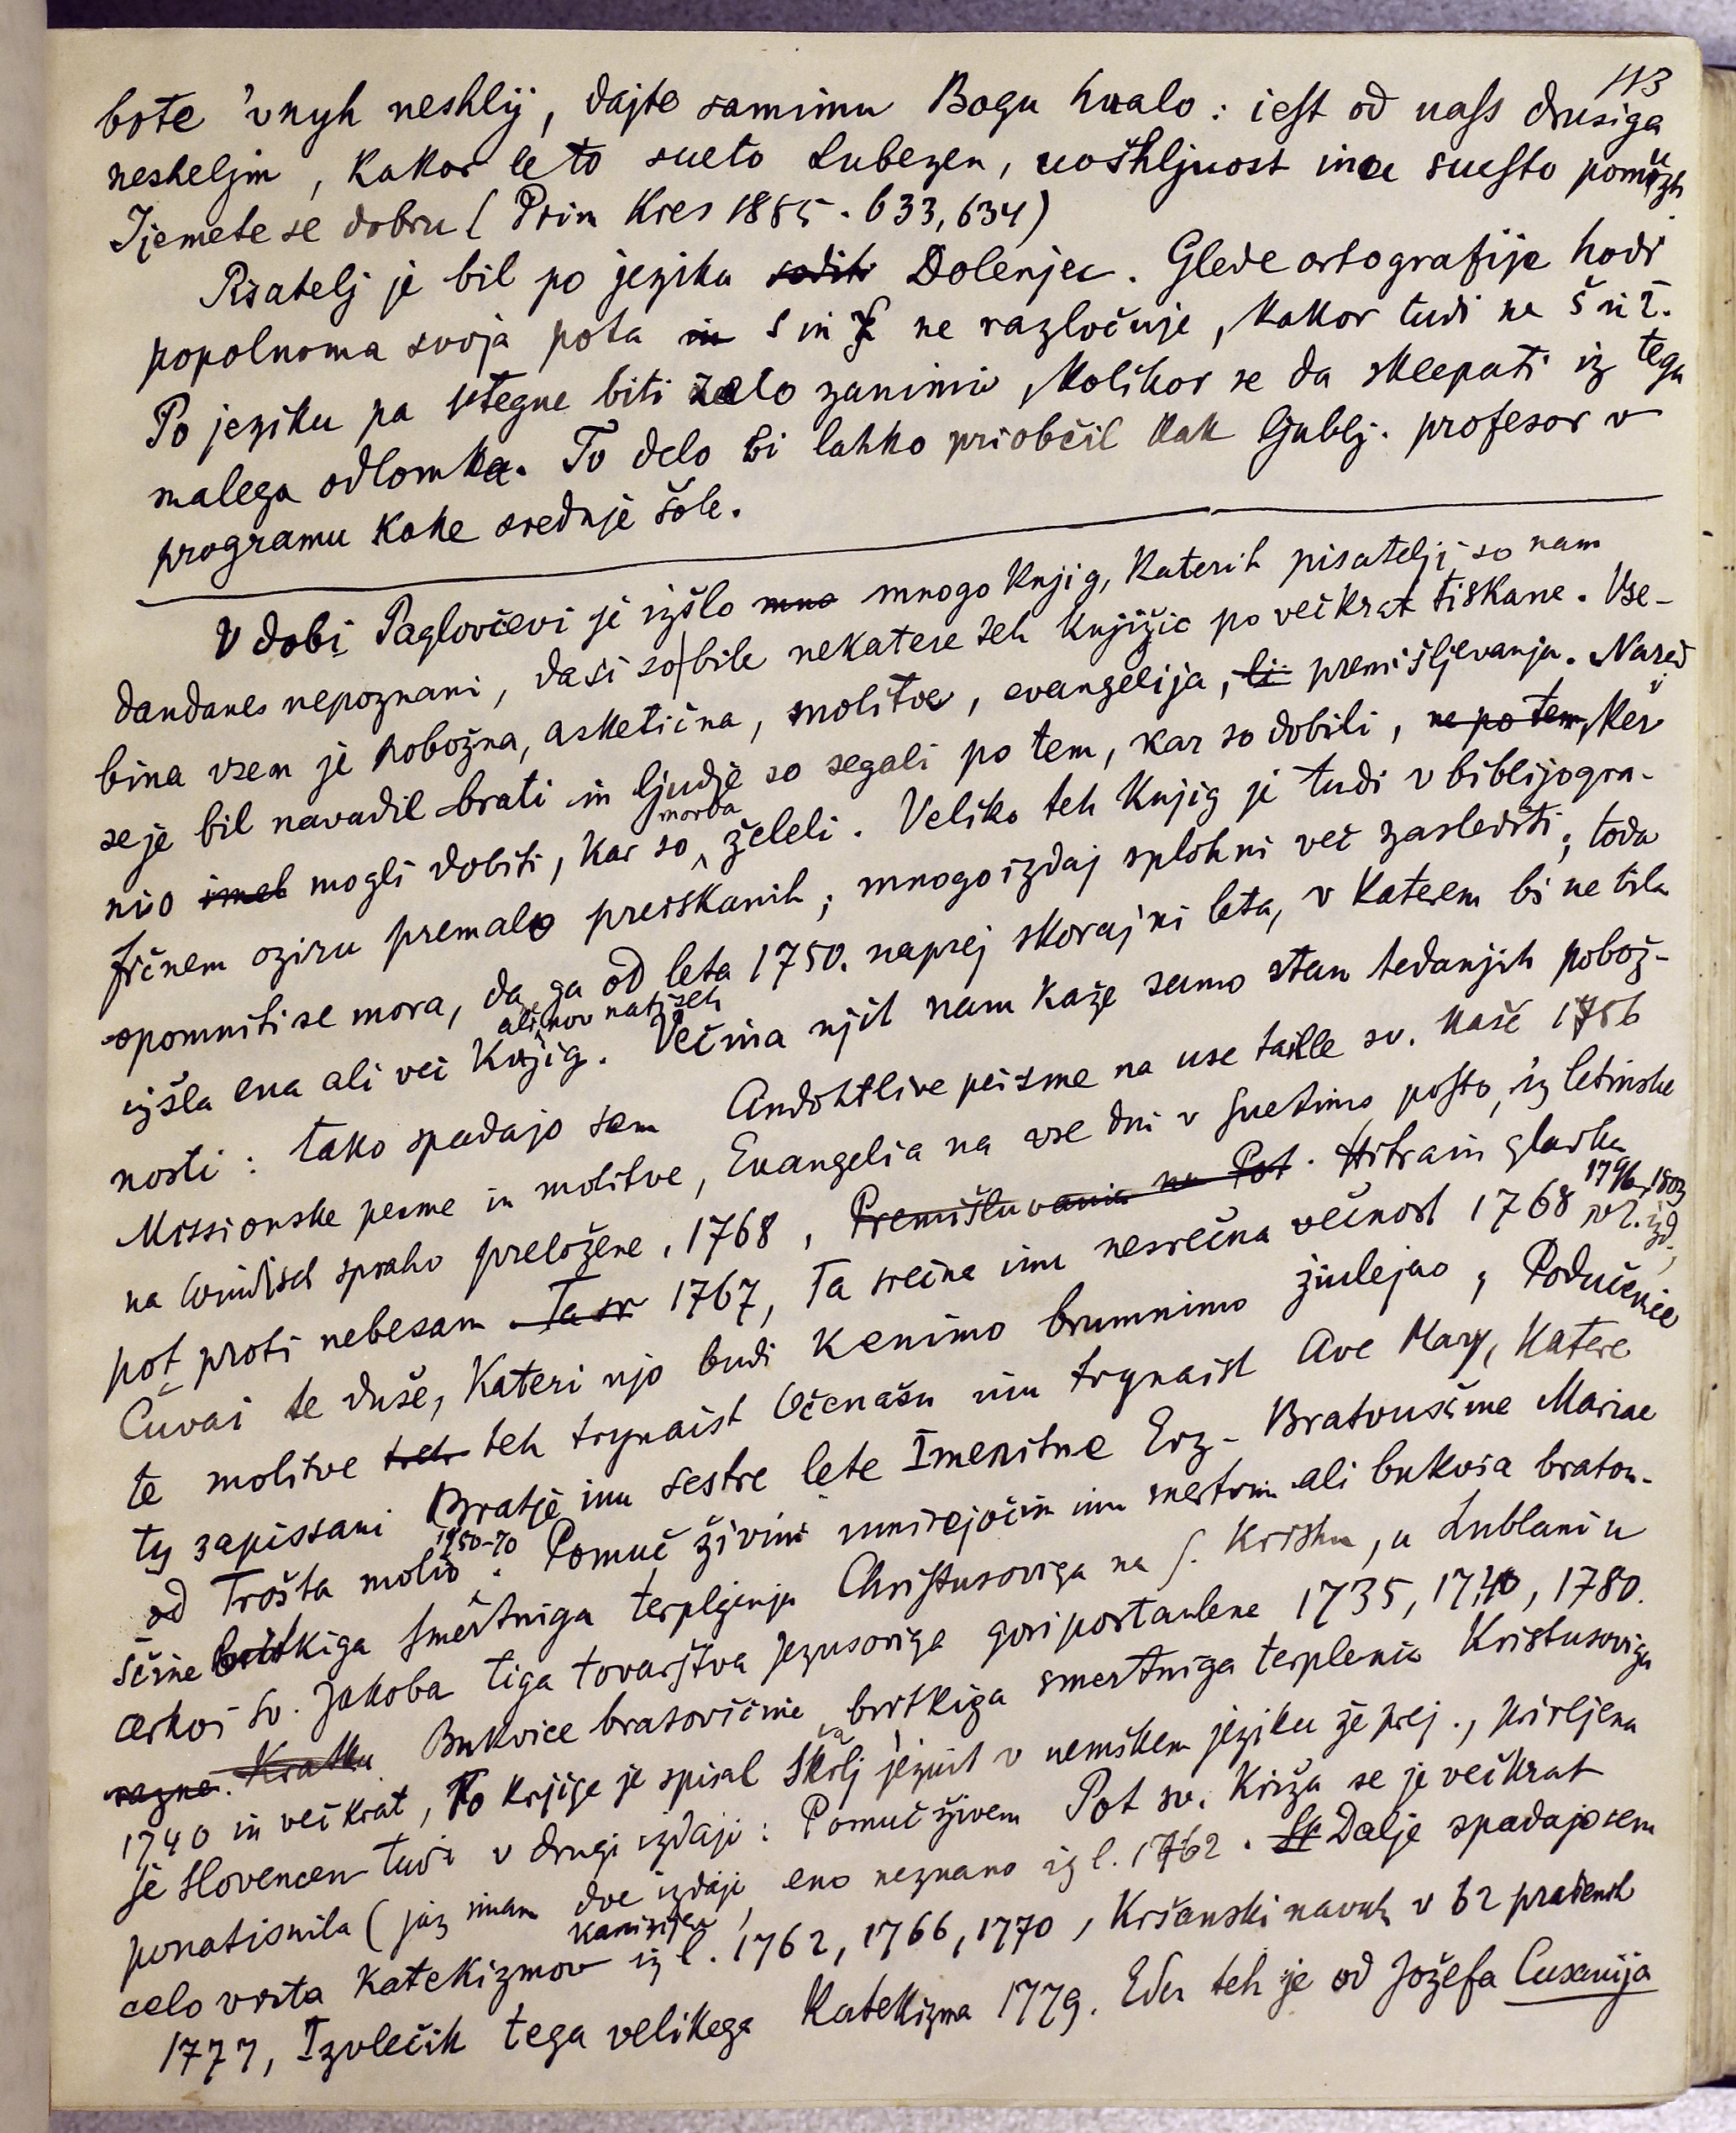 113
bote 'vnyh neshlij, dajte samimu Bogu hualo: iest od uass drusiga
nesheljm, kakor le to sueto Lubezen, uoshljuost inu suesto pomuzh
Ijemete se dobru (Prim Kres 1885. 633, 634)
Pisatelj je bil po jeziku sodih Dolenjec. Glede ortografije hodi
popolnoma svoja pota in s in ſ ne razločuje, kakor tudi ne š in ž.
Po jeziku pa utegne biti zelo zanimiv, kolikor se da sklepati iz tega
malega odlomka. To delo bi lahko priobčil kak ljublj. profesor v
programu kake srednje šole.
V dobi Paglovčevi je izšlo mno mnogo knjig, katerih pisatelji so nam
dandanes nepoznani, dasi so bile nekatere teh knjižic po večkrat tiskane. Vse-
bina vsem je pobožna, asketična, molitve, evangelija, li premišljevanja. Narod
se je bil navadil brati in ljudje so segali po tem, kar so dobili, ne po tem, ker
niso imel mogli dobiti, kar so morda želeli. Veliko teh knjig je tudi v biblijogra-
fičnem oziru premalo preiskanih; mnogo izdaj sploh ni več zaslediti; toda
opomniti se mora, da ga od leta 1750. naprej skoraj ni leta, v katerem bi ne bila
izšla ena ali več knjig. ali nov natiseh Večina njih nam kaže samo stan tedanjih pobož-
nosti: tako spadajo sem Andohtlive peisme na use taille sv. maše 1756
Missionske pesme in molitve, Evangelia na vse dni v suetimo posto, iz letinske
na windisch spraho preložene, 1768, Premišluvania na Pot. Hitra in gladka
pot proti nebesam Ta sr 1767, Ta srečna inu nesrečna večnost 1768 1796, 1803 v 2. izd.,
Čuvai te duše, kateri njo budi kenimo brumnimo živlejno, Podučenie
te molitve teh teh trynaist Očenašu inu trynaist Ave Mary, katere
ty zapissani Bratje inu sestre lete Imenitne Erz-Bratvušine Mariae
od Trošta molio 1750-70. Pomuč živim umirejočim inu mertvim ali bukvica bratou-
ščine britkiga smertniga terplenja Christusoviga na s. Krishu, u Lublani u
cerkvi sv. Jakoba tiga tovarštva Jezusoviga gori postaulene 1735, 1740, 1780.
razne. Kratku Bukvice bratovščine britkiga smertniga terplenia Kristusoviga
1740 in večkrat, To knjige je spisal Skerlj jezuit v nemškem jeziku že prej., prirejena
je Slovencem tudi v drugi izdaji: Pomuč živem Pot sv. Križa se je večkrat
ponatisnila (jaz imam dve izdaji, eno neznano iz l. 1762. Sp Dalje spadajo sem
celo vrsta katekizmov kanizijev iz l. 1762, 1766, 1770, Kršanski navuk v 62 pradenih
1777, Izvleček tega velikega Katekizma 1779. Eden teh je od Jožefa Cusanija